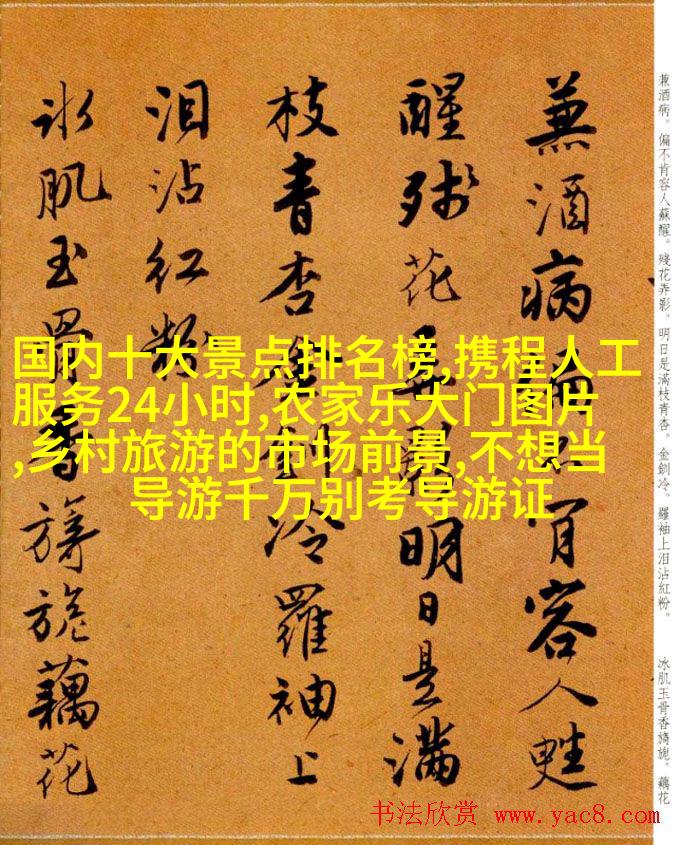 兼酒病。偏不肯容人蘇醒。殘花弄影。明日是滿枝青杏。金釧冷。羅袖上泪沾紅粉。
冰肌玉骨香旖旎。藕花
兼酒病偏不肯容人甦
醒残花弄影明日是滿
枝青杏金釧冷羅袖上
泪沾紅粉
冰肌玉骨香旖旎藕花
国内十大景点排名榜,携程人工
服务24小时,农家乐大门图片
,乡村旅游的市场前景,不想当
导游千万别考导游证
书法欣赏 www.yac8.com